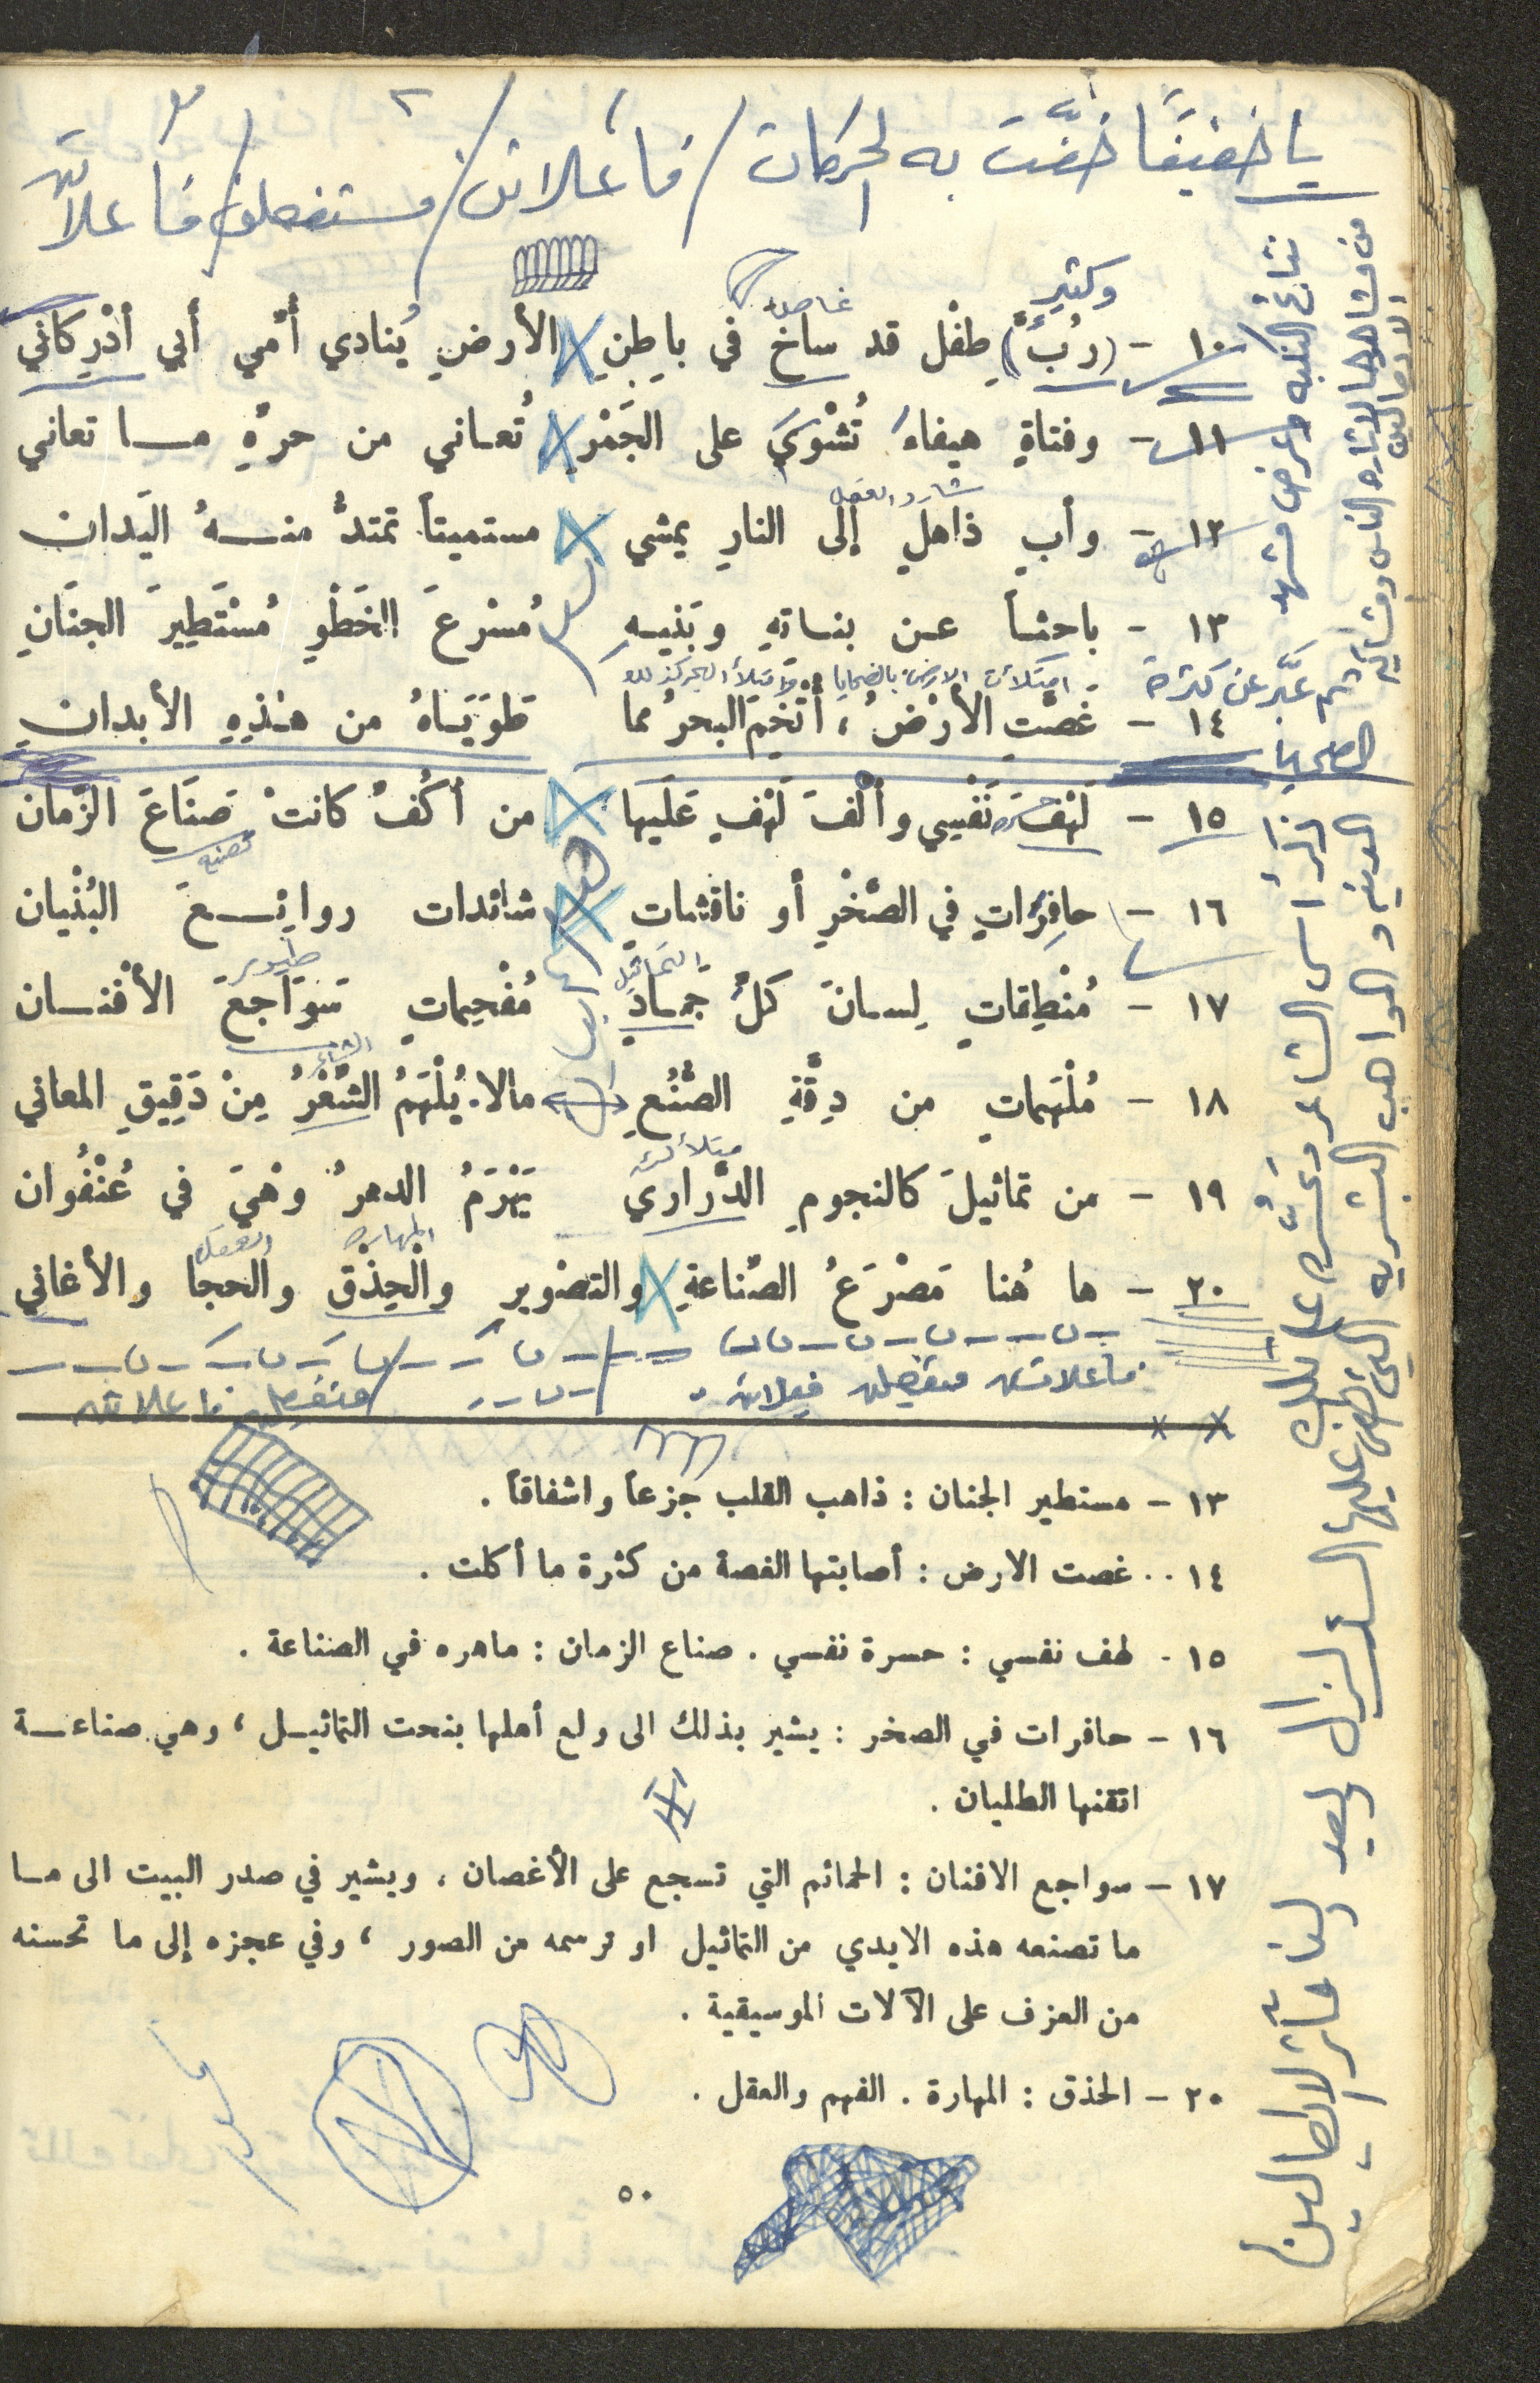 يا خفيفًا خفَّت به الحركات / فاعلاتن / مستفعلن / فاعلاتن
وكثير
غاص
١٠ - (رُبَّ) طِفْل قد ساخَ في باطِنِ الأرضِ يُنادي أُمِّي أبي أدْرِكاني
١١ - وفتاةٍ هيفاءَ تُشْوَى على الجَمْرِ تُعاني من حرِّهِ مـا تعاني
شارد العقل
١٢ - وأبٍ ذاهلٍ إلى النارِ يمشي مستميتاً تمتدُّ منـهُ اليَدان
١٣ - باحثـاً عـن بنـاتهِ وبَنيـهِ مُسْرعَ الخَطْوِ مُسْتَطِيرَ الجنَانِ
امتلأت الارض بالضحايا وامتلأ البحر كذلك
١٤ - غَصَّتِ الأرْضُ ، أُتْخِمَ البحرُ مما طَوَيَـاهُ من هـٰذِهِ الأبدانِ
١٥ - لَهْفَ نَفْسِي وألْفَ لَهْفٍ عَلَيها من أكُفٍّ كانتْ صَنَاعَ الزَّمان
١٦ - حافِرَاتٍ في الصَّخْرِ أو ناقشاتٍ شائدات روائِـعَ البُنْيان
التماثيل
طيور
١٧ - مُنْطِقاتٍ لِسـانَ كلِّ جَمـادٍ مُفْحِماتٍ سَوَاجعَ الأفْنـان
الشاعر
١٨ - مُلْهَماتٍ من دِقَّةِ الصُّنْعِ مالا يُلْهَمُ الشِّعْرُ مِنْ دَقِيقِ المعاني
متلألئة
١٩ - من تماثيلَ كالنجومِ الدَّراري يَهْرَمُ الدهرُ وهْيَ في عُنْفُوان
المهارة
العقل
٢٠ - ها هُنا مَصْرَعُ الصِّناعةِ والتصْويرِ والْحِذْقِ والحجا والأغاني
فاعلاتن متفعلن فعلاتن
متفعلن فاعلاتن
١٣ - مستطير الجنان : ذاهب القلب جزعاً واشفاقاً .
١٤ .. غصت الارض : أصابتها الغصة من كثرة ما أكلت .
١٥ . لهف نفسي : حسرة نفسي . صناع الزمان : ماهره في الصناعة .
١٦ - حافرات في الصخر : يشير بذلك الى ولع أهلها بنحت التماثيـل ، وهي صناعـة
اتقنها الطليان .
١٧ - سواجع الافنان : الحمائم التي تسجع على الأغصان ، ويشير في صدر البيت الى مـا
ما تصنعه هذه الايدي من التماثيل او ترسمه من الصور ، وفي عجزه إلى ما تحسنه
من العزف على الآلات الموسيقية .
٢٠ - الحذق : المهارة . الفهم والعقل .
٥٠
نتائج النكبة وعرض مشهد
من مشاهدها لاثارة الناس ومشاركتهم
عبَّر عن كثرة
الضحايا
ذكر أسى الشاعر وتحسُّره على تلك
المدينة والمواهب البشرية التي قضى عليها الزلزال